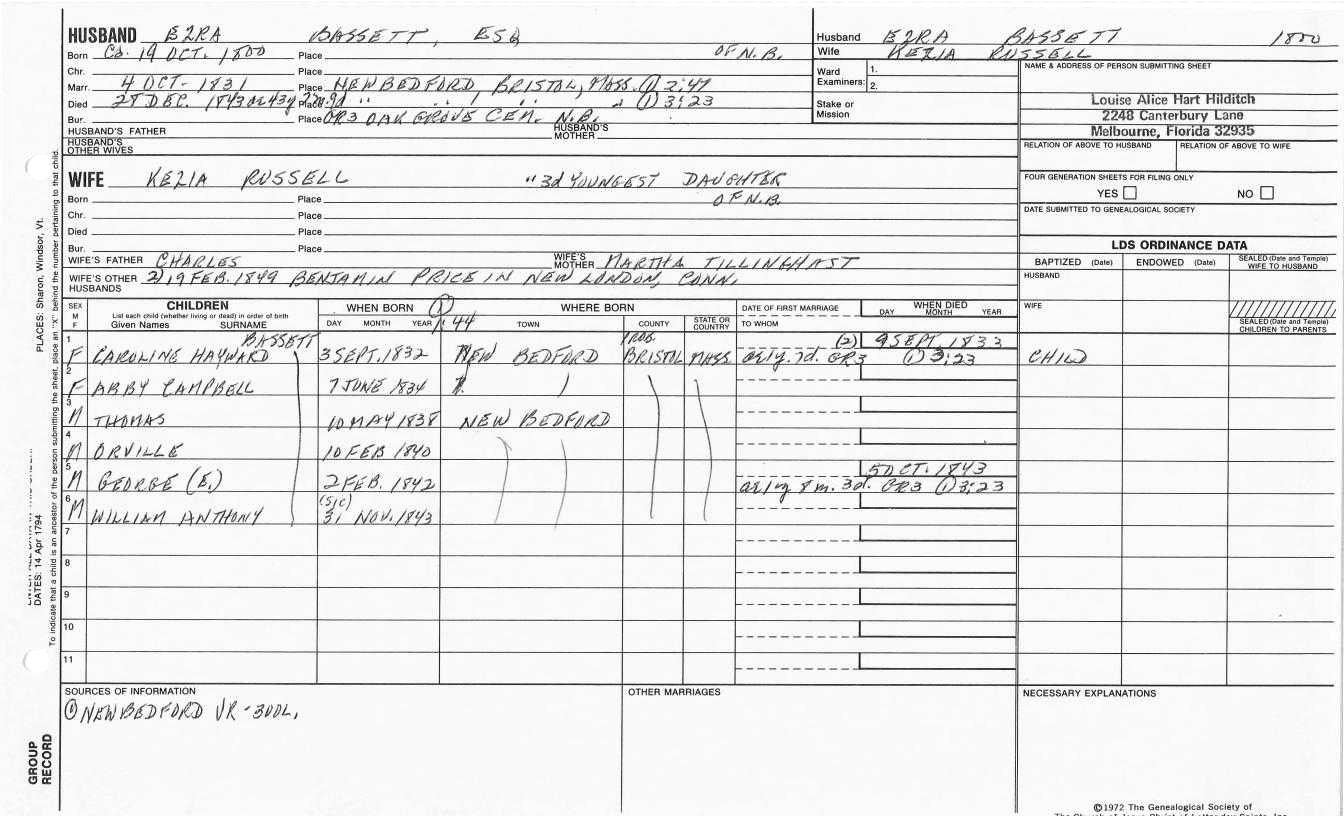 HUSBAND EZRA BASSETT, ESQ
Born Ca. 19 OCT. 1800 Place OF N.B.
Chr. Place
Marr. 4 OCT. 1831 Place NEW BEDFORD, BRISTOL, MASS. (1) 2:47
Died 28 DEC. 1843 ae 43y 2m 9d Place " " " (1) 3:23
Bur. Place GR3 OAK GROVE CEM. N.B.
HUSBAND'S FATHER HUSBAND'S MOTHER
HUSBAND'S OTHER WIVES
Husband EZRA BASSETT 1800
Wife KEZIA RUSSELL
Ward Examiners: 1.
2.
Stake or Mission
NAME & ADDRESS OF PERSON SUBMITTING SHEET
Louise Alice Hart Hilditch
2248 Canterbury Lane
Melbourne, Florida 32935
RELATION OF ABOVE TO HUSBAND RELATION OF ABOVE TO WIFE
FOUR GENERATION SHEETS FOR FILING ONLY
YES NO
DATE SUBMITTED TO GENEALOGICAL SOCIETY
WIFE KEZIA RUSSELL "3d YOUNGEST DAUGHTER
Born Place OF N.B.
Chr. Place
Died Place
Bur. Place
WIFE'S FATHER CHARLES WIFE'S MOTHER MARTHA TILLINGHAST
WIFE'S OTHER HUSBANDS 2) 19 FEB. 1849 BENJAMIN PRICE IN NEW LONDON, CONN.
LDS ORDINANCE DATA
BAPTIZED (Date) ENDOWED (Date) SEALED (Date and Temple) WIFE TO HUSBAND
HUSBAND
WIFE
SEALED (Date and Temple) CHILDREN TO PARENTS
SEX M F
CHILDREN
List each child (whether living or dead) in order of birth
Given Names SURNAME
WHEN BORN (1) 1:44
DAY MONTH YEAR
WHERE BORN
TOWN COUNTY STATE OR COUNTRY
DATE OF FIRST MARRIAGE
TO WHOM
WHEN DIED
DAY MONTH YEAR
BASSETT PROB. (2) 9 SEPT. 1833
1 F CAROLINE HAYWARD 3 SEPT. 1832 NEW BEDFORD BRISTOL MASS. ae 1y. 7d. GR3 (1) 3:23 CHILD
2 F ABBY CAMPBELL 7 JUNE 1834
3 M THOMAS 10 MAY 1838 NEW BEDFORD
4 M ORVILLE 10 FEB 1840
5 M GEORGE (E.) 2 FEB. 1842 5 OCT. 1843
ae 1y 8m. 3d. GR3 (1) 3:23
6 M WILLIAM ANTHONY (SIC) 31 NOV. 1843
7
8
9
10
11
SOURCES OF INFORMATION
(1) NEW BEDFORD VR - 300L.
OTHER MARRIAGES
NECESSARY EXPLANATIONS
©1972 The Genealogical Society of
PLACES: Sharon, Windsor, Vt.
DATES: 14 Apr 1794
To indicate that a child is an ancestor of the person submitting the sheet, place an "X" behind the number pertaining to that child.
GROUP RECORD